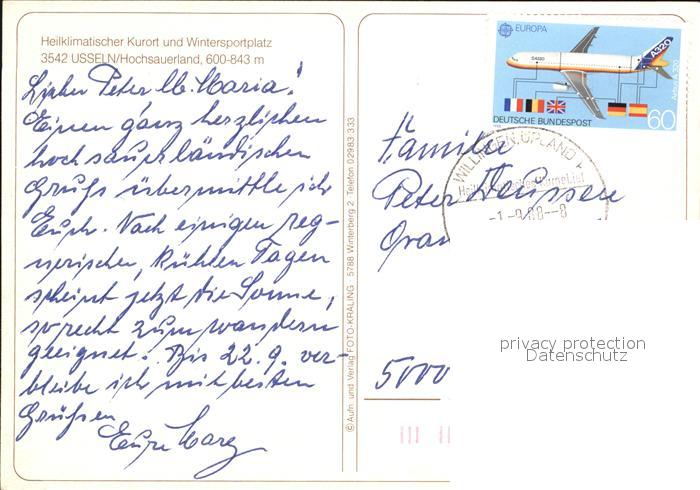 Heilklimatischer Kurort und Wintersportplatz
3542 USSELN/Hochsauerland, 600-843 m
Lieber Peter u. Maria!
Einen ganz herzlichen
hochsauerländischen
Gruß übermittle ich
Euch. Nach einigen reg-
nerischen, kühlen Tagen
scheint jetzt die Sonne,
so recht zum wandern
geeignet. Bis 22.9. ver-
bleibe ich mit besten
Grüßen
Eure
© Aufn. und Verlag FOTO-KRALING 5788 Winterberg 2 Telefon 02983 333
EUROPA
A320
Airbus A 320
DEUTSCHE BUNDESPOST
60
WILLINGEN, UPLAND
Familie
Peter Deussen
5000
privacy protection
Datenschutz